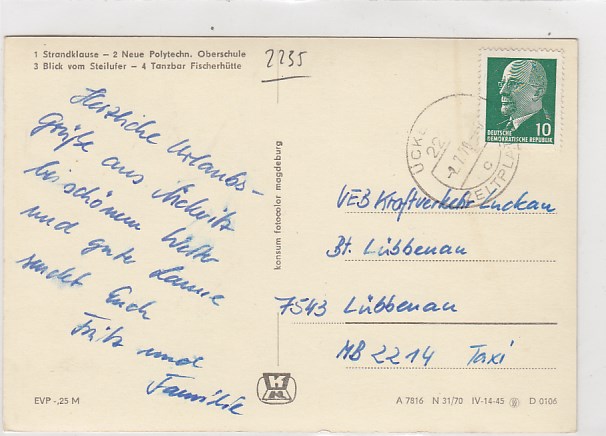 1 Strandklause – 2 Neue Polytechn. Oberschule
3 Blick vom Steilufer – 4 Tanzbar Fischerhütte
2235
Herzliche Urlaubs-
grüße aus
bei schönem Wetter
und guter Laune
sendet Euch
Fritz und
Familie
konsum fotocolor magdeburg
DEUTSCHE
DEMOKRATISCHE REPUBLIK
10
22
c
VEB Kraftverkehr Luckau
Bt. Lübbenau
7543 Lübbenau
MB 2214 Taxi
EVP -,25 M
A 7816 N 31/70 IV-14-45 D 0106